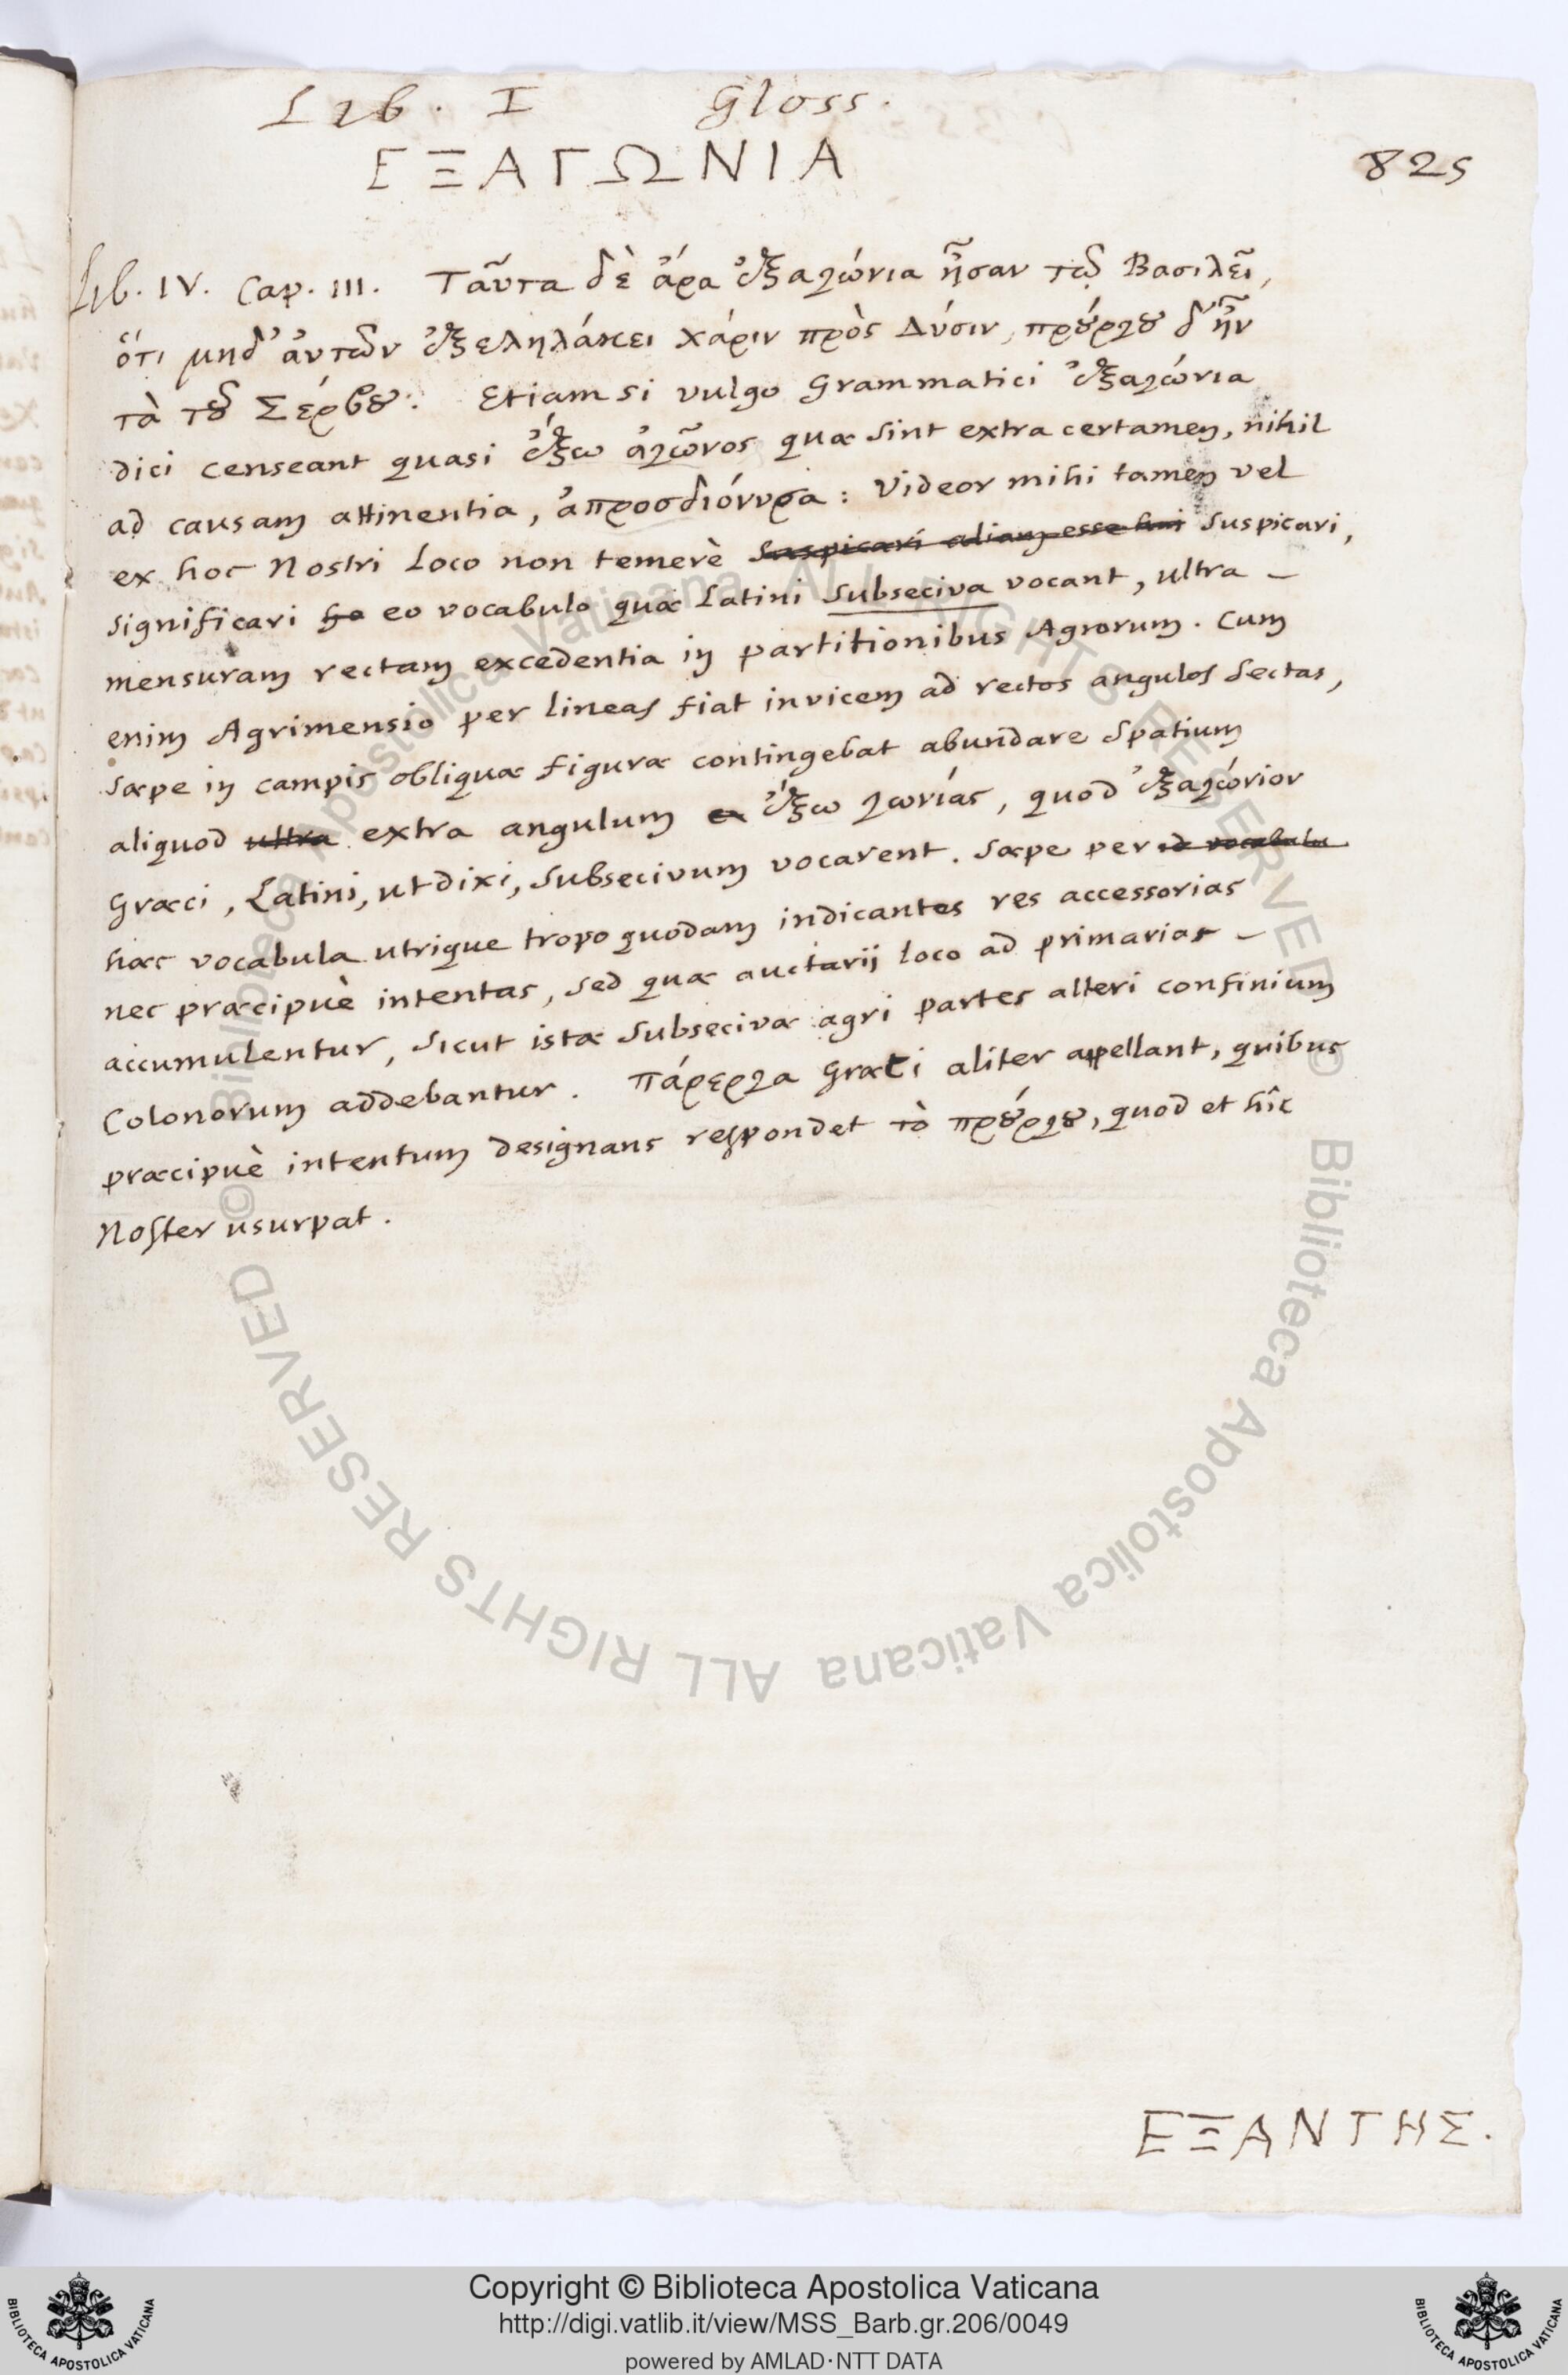 Lib. I Gloss.
ΕΞΑΓΩΝΙΑ
825
Lib. IV. Cap. III. Ταῦτα δὲ ἄρα ἐξαγώνια ἦσαν τῷ Βασιλεῖ,
ὅτι μηδ' ἀυτῶν ἐξεληλάκει χάριν πρὸς Δύσιν, προύργου δ' ἦν
τὰ τοῦ Σέρβου. Etiamsi vulgo Grammatici ἐξαγώνια
dici censeant quasi ἔξω ἀγῶνος quæ sint extra certamen, nihil
ad causam attinentia, ἀπροσδιόνυσα: Videor mihi tamen vel
ex hoc Nostri Loco non temerè suspicari aliam esse hui suspicari,
significari ho eo vocabulo quæ Latini subseciva vocant, ultra –
mensuram rectam excedentia in partitionibus Agrorum. Cum
enim Agrimensio per lineas fiat invicem ad rectos angulos sectas,
sæpe in campis obliquæ figuræ contingebat abundare spatium
aliquod ultra extra angulum ex ἔξω γωνίας, quod ἐξαγώνιον
Græci, Latini, ut dixi, subsecivum vocarent. Sæpe per id vocabulu
hæc vocabula utrique tropo quodam indicantes res accessorias
nec præcipuè intentas, sed quæ auctarij loco ad primarias –
accumulentur, sicut istæ subsecivæ agri partes alteri confinium
Colonorum addebantur. Πάρεργα Græci aliter appellant, quibus
præcipuè intentum designans respondet τὸ προύργου, quod et hîc
Noster usurpat.
ΕΞΑΝΤΗΣ.
© Biblioteca Apostolica Vaticana ALL RIGHTS RESERVED
© Biblioteca Apostolica Vaticana ALL RIGHTS RESERVED
Copyright © Biblioteca Apostolica Vaticana
http://digi.vatlib.it/view/MSS_Barb.gr.206/0049
powered by AMLAD·NTT DATA
BIBLIOTECA APOSTOLICA VATICANA
BIBLIOTECA APOSTOLICA VATICANA